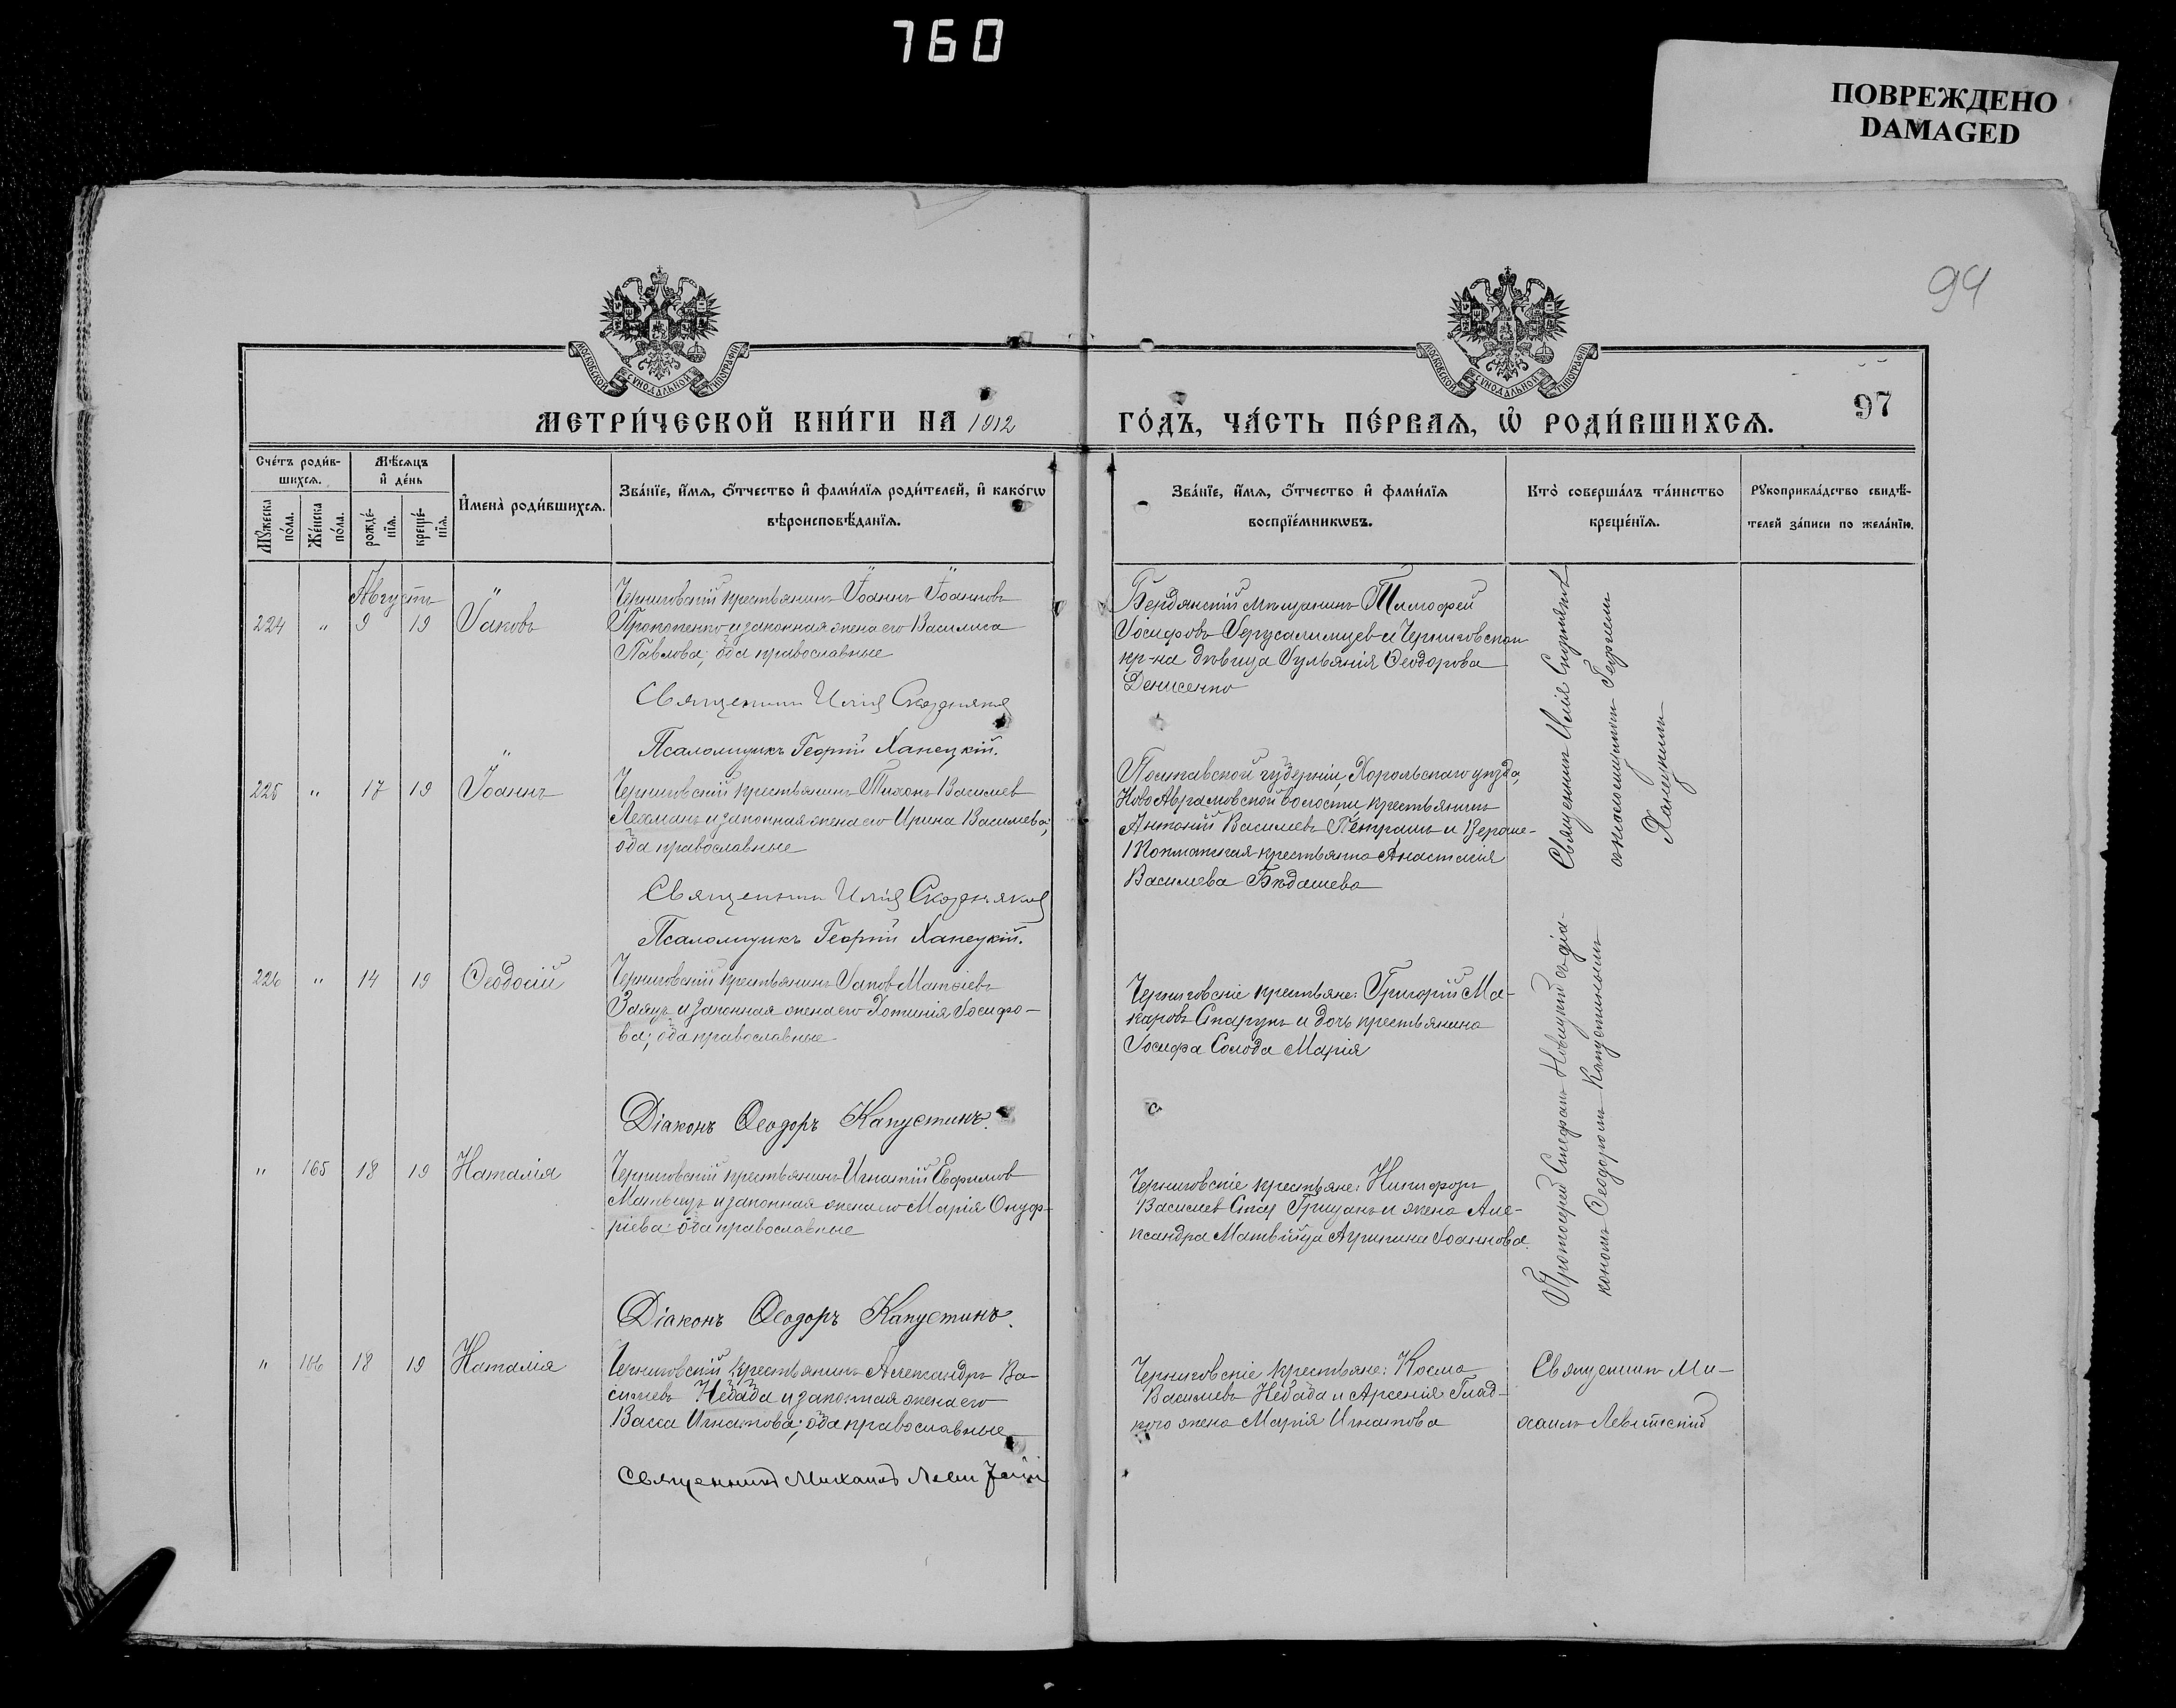 760
ПОВРЕЖДЕНО
DAMAGED
94
МОСКОВСКОЙ СѴНОДАЛЬНОЙ ТИПОГРАФІИ
МОСКОВСКОЙ СѴНОДАЛЬНОЙ ТИПОГРАФІИ
97
МЕТРИ́ЧЕСКОЙ КНИ́ГИ НА 1912
ГО́ДЪ, ЧА́СТЬ ПЕ́РВАѦ, Ѡ҆ РОДИ́ВШИХСѦ.
Сче́тъ роди́в-
шихсѧ.
Мѣ́сѧцъ
и҆ де́нь
Мꙋ́жеска
по́ла.
Же́нска
по́ла.
рожде́-
нїѧ.
креще́-
нїѧ.
И҆мена̀ роди́вшихсѧ.
Зва́нїе, и҆́мѧ, ѻ҆́тчество и҆ фами́лїѧ роди́телей, и҆ како́гѡ
вѣроисповѣ́данїѧ.
Зва́нїе, и҆́мѧ, ѻ҆́тчество и҆ фами́лїѧ
воспрїе́мникѡвъ.
Кто̀ соверша́лъ та́инство
креще́нїѧ.
Рꙋкоприкла́дство свидѣ́-
телей за́писи по жела́нїю.
Августъ
224 " 9 19 Іаковъ
Черниговскій крестьянинъ Іоаннъ Іоанновъ
Прокопенко и законная жена его Василиса
Павлова; оба православные
Священникъ Илія Скорняковъ
Псаломщикъ Георгій Ханецкій.
Бердянскій мѣщанинъ Тимофей
Іосифовъ Іерусалимцев и Черниговская
кр-на дѣвица Іульянія Ѳеодорова
Денисенко
Священникъ Илія Скорняковъ
съ псаломщикомъ Георгіемъ
Ханецкимъ
225 " 17 19 Іоаннъ
Черниговскій крестьянинъ Тихонъ Васильев
Лехманъ и законная жена его Ирина Васильева;
оба православные
Священникъ Илія Скорняковъ
Псаломщикъ Георгій Ханецкій.
Полтавской губерніи, Хорольскаго уѣзда,
Ново Аврамовской волости крестьянинъ
Антоній Васильевъ Петрашъ и
крестьянка Анастасія
Васильева Бѣдашева
226 " 14 19 Ѳеодосій
Черниговскій крестьянинъ Іаков Матѳіевъ
Заяцъ и законная жена его Фотинія Іосифо-
ва; оба православные
Діаконъ Ѳеодоръ Капустинъ.
Черниговскіе крестьяне: Григорій Ма-
каровъ Старунъ и дочь крестьянина
Іосифа Солода Марія
Протоіерей Стефанъ Новицкій съ діа-
кономъ Ѳеодоромъ Капустинымъ
" 165 18 19 Наталія
Черниговскій крестьянинъ Игнатій Евфимов
Матвіецъ и законная жена его Марія Онуф-
ріева; оба православные
Діаконъ Ѳеодоръ Капустинъ.
Черниговскіе крестьяне: Никифоръ
Васильев Грицанъ и жена Але-
ксандра Матвійца Агрипина Іоаннова.
" 166 18 19 Наталія
Черниговскій крестьянинъ Александръ Ва-
сильевъ Небаба и законная жена его
Васса Игнатова; оба православные
Священникъ Михаилъ Левитскій
Черниговскіе крестьяне: Косма
Васильевъ Небаба и Арсенія Глад-
кого жена Марія Игнатова
Священникъ Ми-
хаилъ Левитскій